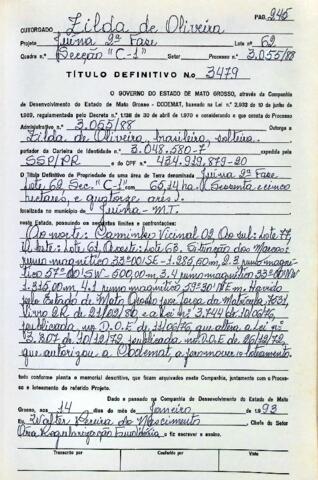 PAG. 245
OUTORGADO Zilda de Oliveira
Projeto Juína 2ª Fase Lote nº 62
Quadra nº Secção "C-1" Setor Processo nº 3.055/88
TÍTULO DEFINITIVO No 3479
O GOVERNO DO ESTADO DE MATO GROSSO, através da Companhia
de Desenvolvimento do Estado de Mato Grosso - CODEMAT, baseado na Lei nº 2.932 de 10 de junho de
1969, regulamentada pelo Decreto nº 1.138 de 30 de abril de 1970 e considerando o que consta do Processo
Administrativo n.º 3.055/88 Outorga a
Zilda de Oliveira, brasileira, solteira.
portador da Carteira de Identidade nº 3.048.580-7 expedida pela
SSP/PR e do CPF nº 424.919.879-20
O Título Definitivo de Propriedade de uma área de Terra denominada Juína 2ª Fase
Lote 62 Sec. "C-1" com 65,14 ha. (Sessenta e cinco
hectares, e quatorze ares).
localizada no município de Juína-MT.
neste Estado, possuindo os seguintes limites e confrontações:
Ao norte: Caminho Vicinal 02, Ao sul: Lote 77,
A leste: Lote 61, Aoeste: Lote 63. Situação dos Marcos:
rumo magnético 33º00'SE-1.285,60m, 2.3 rumo magné-
tico 57º00'SW-500,00m, 3.4 rumo magnético 33º00'NW
1.315,00m, 4.1 rumo magnético 59º30'NE m. Havido
pelo Estado de Mato Grosso por força da Matrícula
Livro 2R de 21/02/80, e a Lei nº 3.744 de 10/06/76,
publicada no D.O.E de 11/06/76, que altera a Lei nº
3.307 de 10/12/72, publicada no D.O.E de 26/12/72,
que autorizou a Codemat, a promover o loteamento.
tudo conforme planta e memorial descritivo, que ficam arquivados nesta Companhia, juntamente com o Processo
e loteamento do referido Projeto.
Dado e passado na Companhia de Desenvolvimento do Estado de Mato
Grosso, aos 14 dias do mês de Janeiro de 19 93
Eu, Walter Pereira do Nascimento Chefe do Setor
P/ra Regularização Fundiária o fiz escrever e assino.
Transcrito por Conferido por Visto